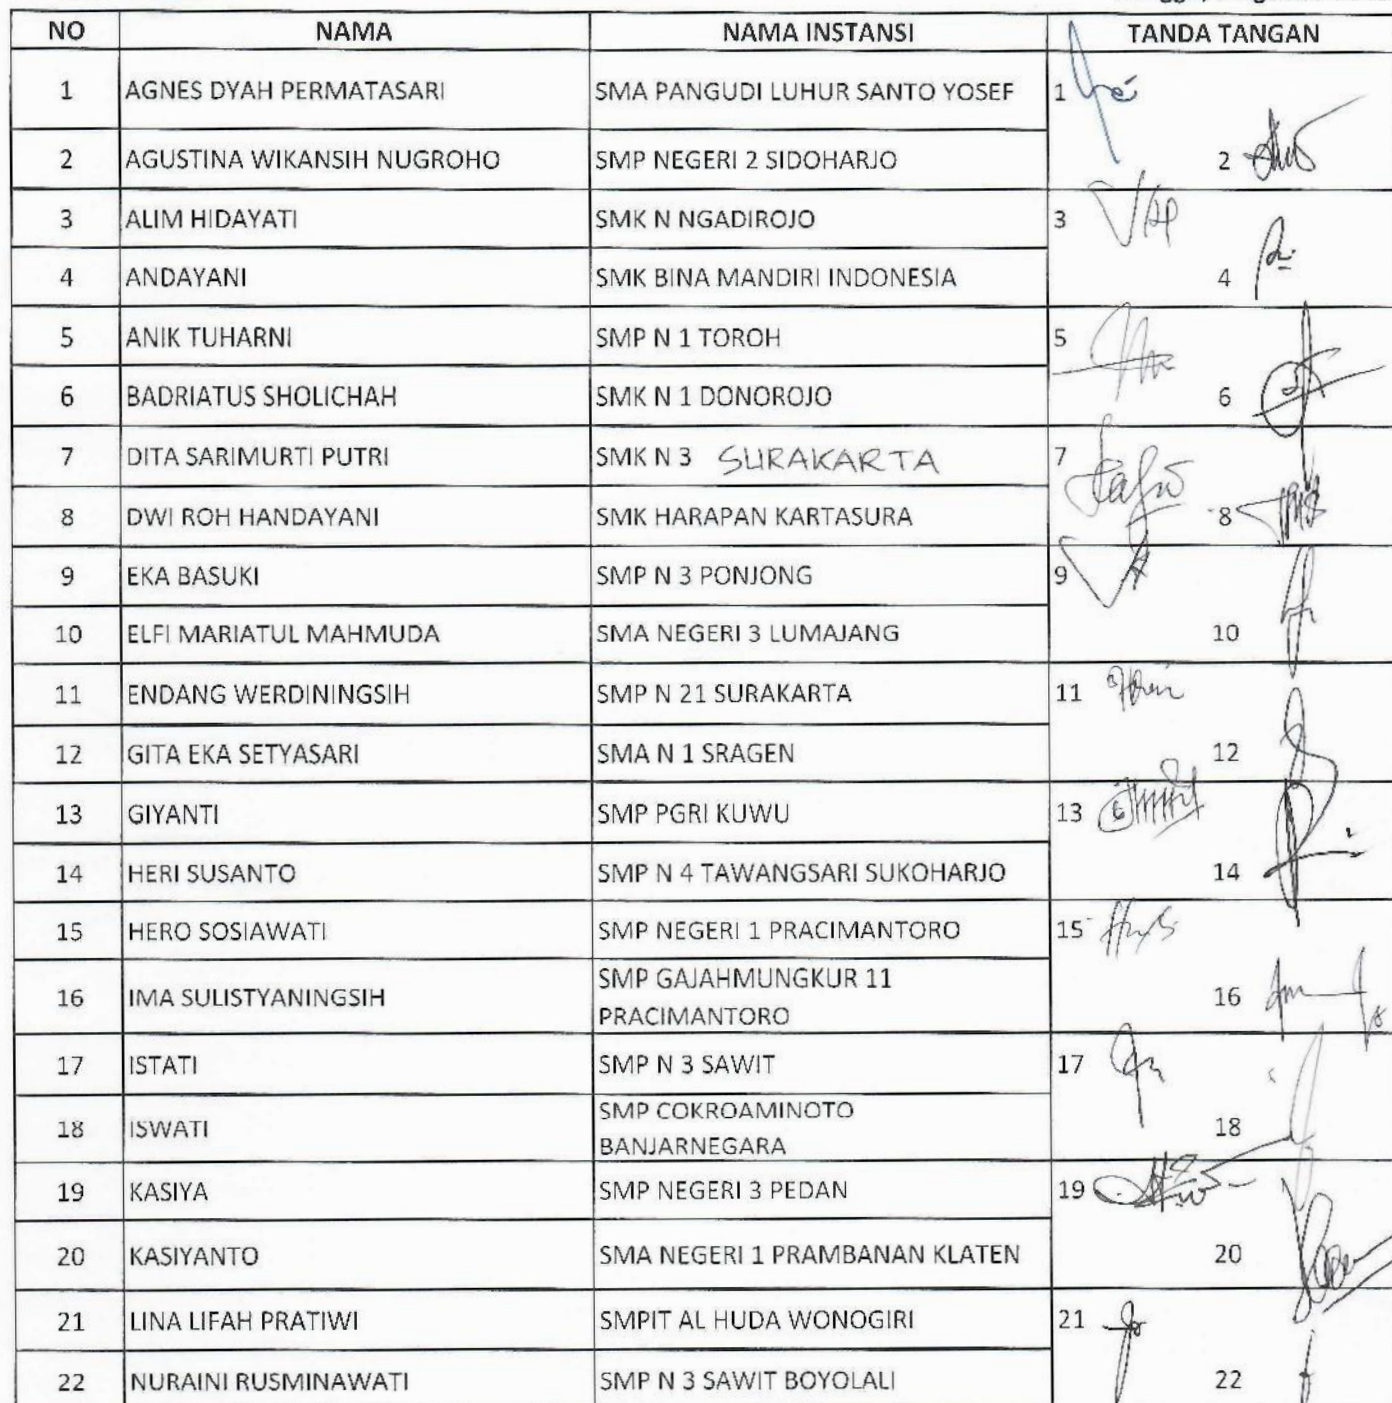 NO NAMA NAMA INSTANSI TANDA TANGAN
1 AGNES DYAH PERMATASARI SMA PANGUDI LUHUR SANTO YOSEF 1
2 AGUSTINA WIKANSIH NUGROHO SMP NEGERI 2 SIDOHARJO 2
3 ALIM HIDAYATI SMK N NGADIROJO 3
4 ANDAYANI SMK BINA MANDIRI INDONESIA 4
5 ANIK TUHARNI SMP N 1 TOROH 5
6 BADRIATUS SHOLICHAH SMK N 1 DONOROJO 6
7 DITA SARIMURTI PUTRI SMK N 3 SURAKARTA 7
8 DWI ROH HANDAYANI SMK HARAPAN KARTASURA 8
9 EKA BASUKI SMP N 3 PONJONG 9
10 ELFI MARIATUL MAHMUDA SMA NEGERI 3 LUMAJANG 10
11 ENDANG WERDININGSIH SMP N 21 SURAKARTA 11
12 GITA EKA SETYASARI SMA N 1 SRAGEN 12
13 GIYANTI SMP PGRI KUWU 13
14 HERI SUSANTO SMP N 4 TAWANGSARI SUKOHARJO 14
15 HERO SOSIAWATI SMP NEGERI 1 PRACIMANTORO 15
16 IMA SULISTYANINGSIH SMP GAJAHMUNGKUR 11
PRACIMANTORO 16
17 ISTATI SMP N 3 SAWIT 17
18 ISWATI SMP COKROAMINOTO
BANJARNEGARA 18
19 KASIYA SMP NEGERI 3 PEDAN 19
20 KASIYANTO SMA NEGERI 1 PRAMBANAN KLATEN 20
21 LINA LIFAH PRATIWI SMPIT AL HUDA WONOGIRI 21
22 NURAINI RUSMINAWATI SMP N 3 SAWIT BOYOLALI 22